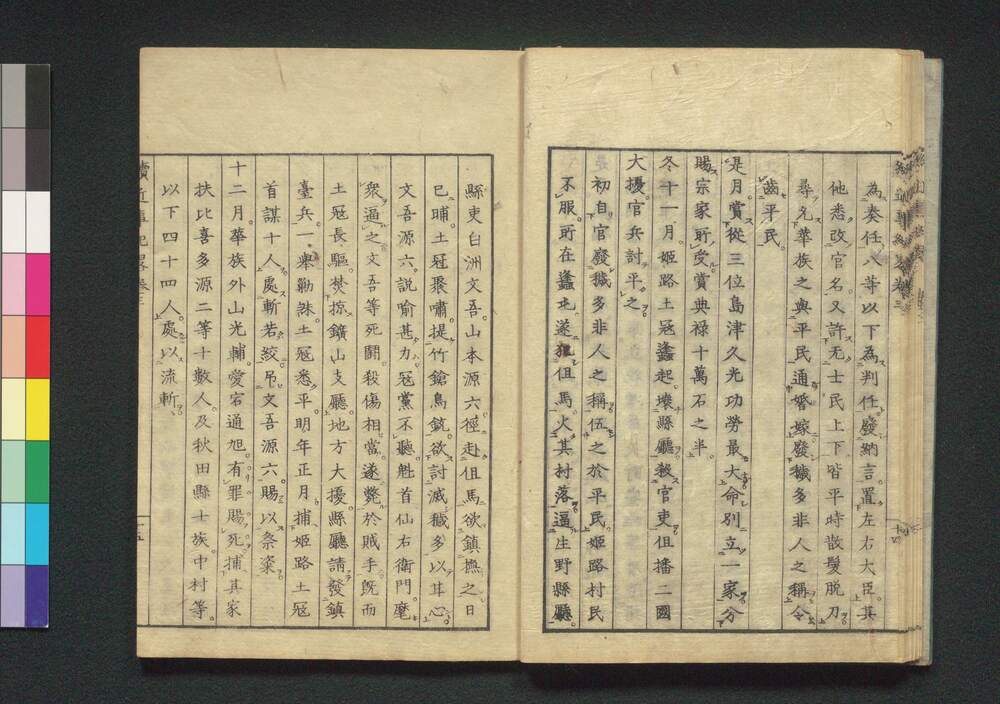 為奏任八等以下為判任廢納言置左右大臣其
他悉改官名又許无士民上下皆平時散髮脱刀
尋允華族之與平民通婚嫁廢穢多非人之稱令
齒平民
是月賞從三位島津久光功勞最大命別立一家分
賜宗家所受賞典祿十萬石之半
冬十一月姫路土冦蠭起壊縣廳殺官吏但播二國
大擾官兵討平之
初自官廢穢多非人之稱伍之於平民姫路村民
不服所在蠭屯遂犯但馬火其村落逼生野縣廳
縣吏白洲文吾山本源六徑赴但馬欲鎮撫之日
已晡土冦聚嘯提竹鎗鳥銃欲討滅穢多以甘心
文吾源六説喻甚力冦黨不聽魁首仙右衛門麾
衆逼之文吾等死鬪殺傷相當遂斃於賊手旣而
土冦長驅焚掠鑛山支廳地方大擾縣廳請發鎮
臺兵一舉勦誅土冦悉平明年正月捕姫路土冦
首謀十人處斬若絞吊文吾源六賜以祭粢
十二月華族外山光輔愛宕通旭有罪賜死捕其家
扶比喜多源二等十數人及秋田縣士族中村等
以下四十四人處以流斬
續近事紀畧卷三